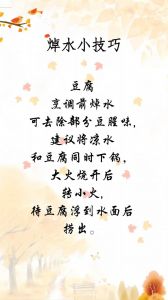 焯水小技巧
豆腐
烹调前焯水
可去除部分豆腥味,
建议将凉水
和豆腐同时下锅,
大火烧开后
转小火,
待豆腐浮到水面后
捞出。